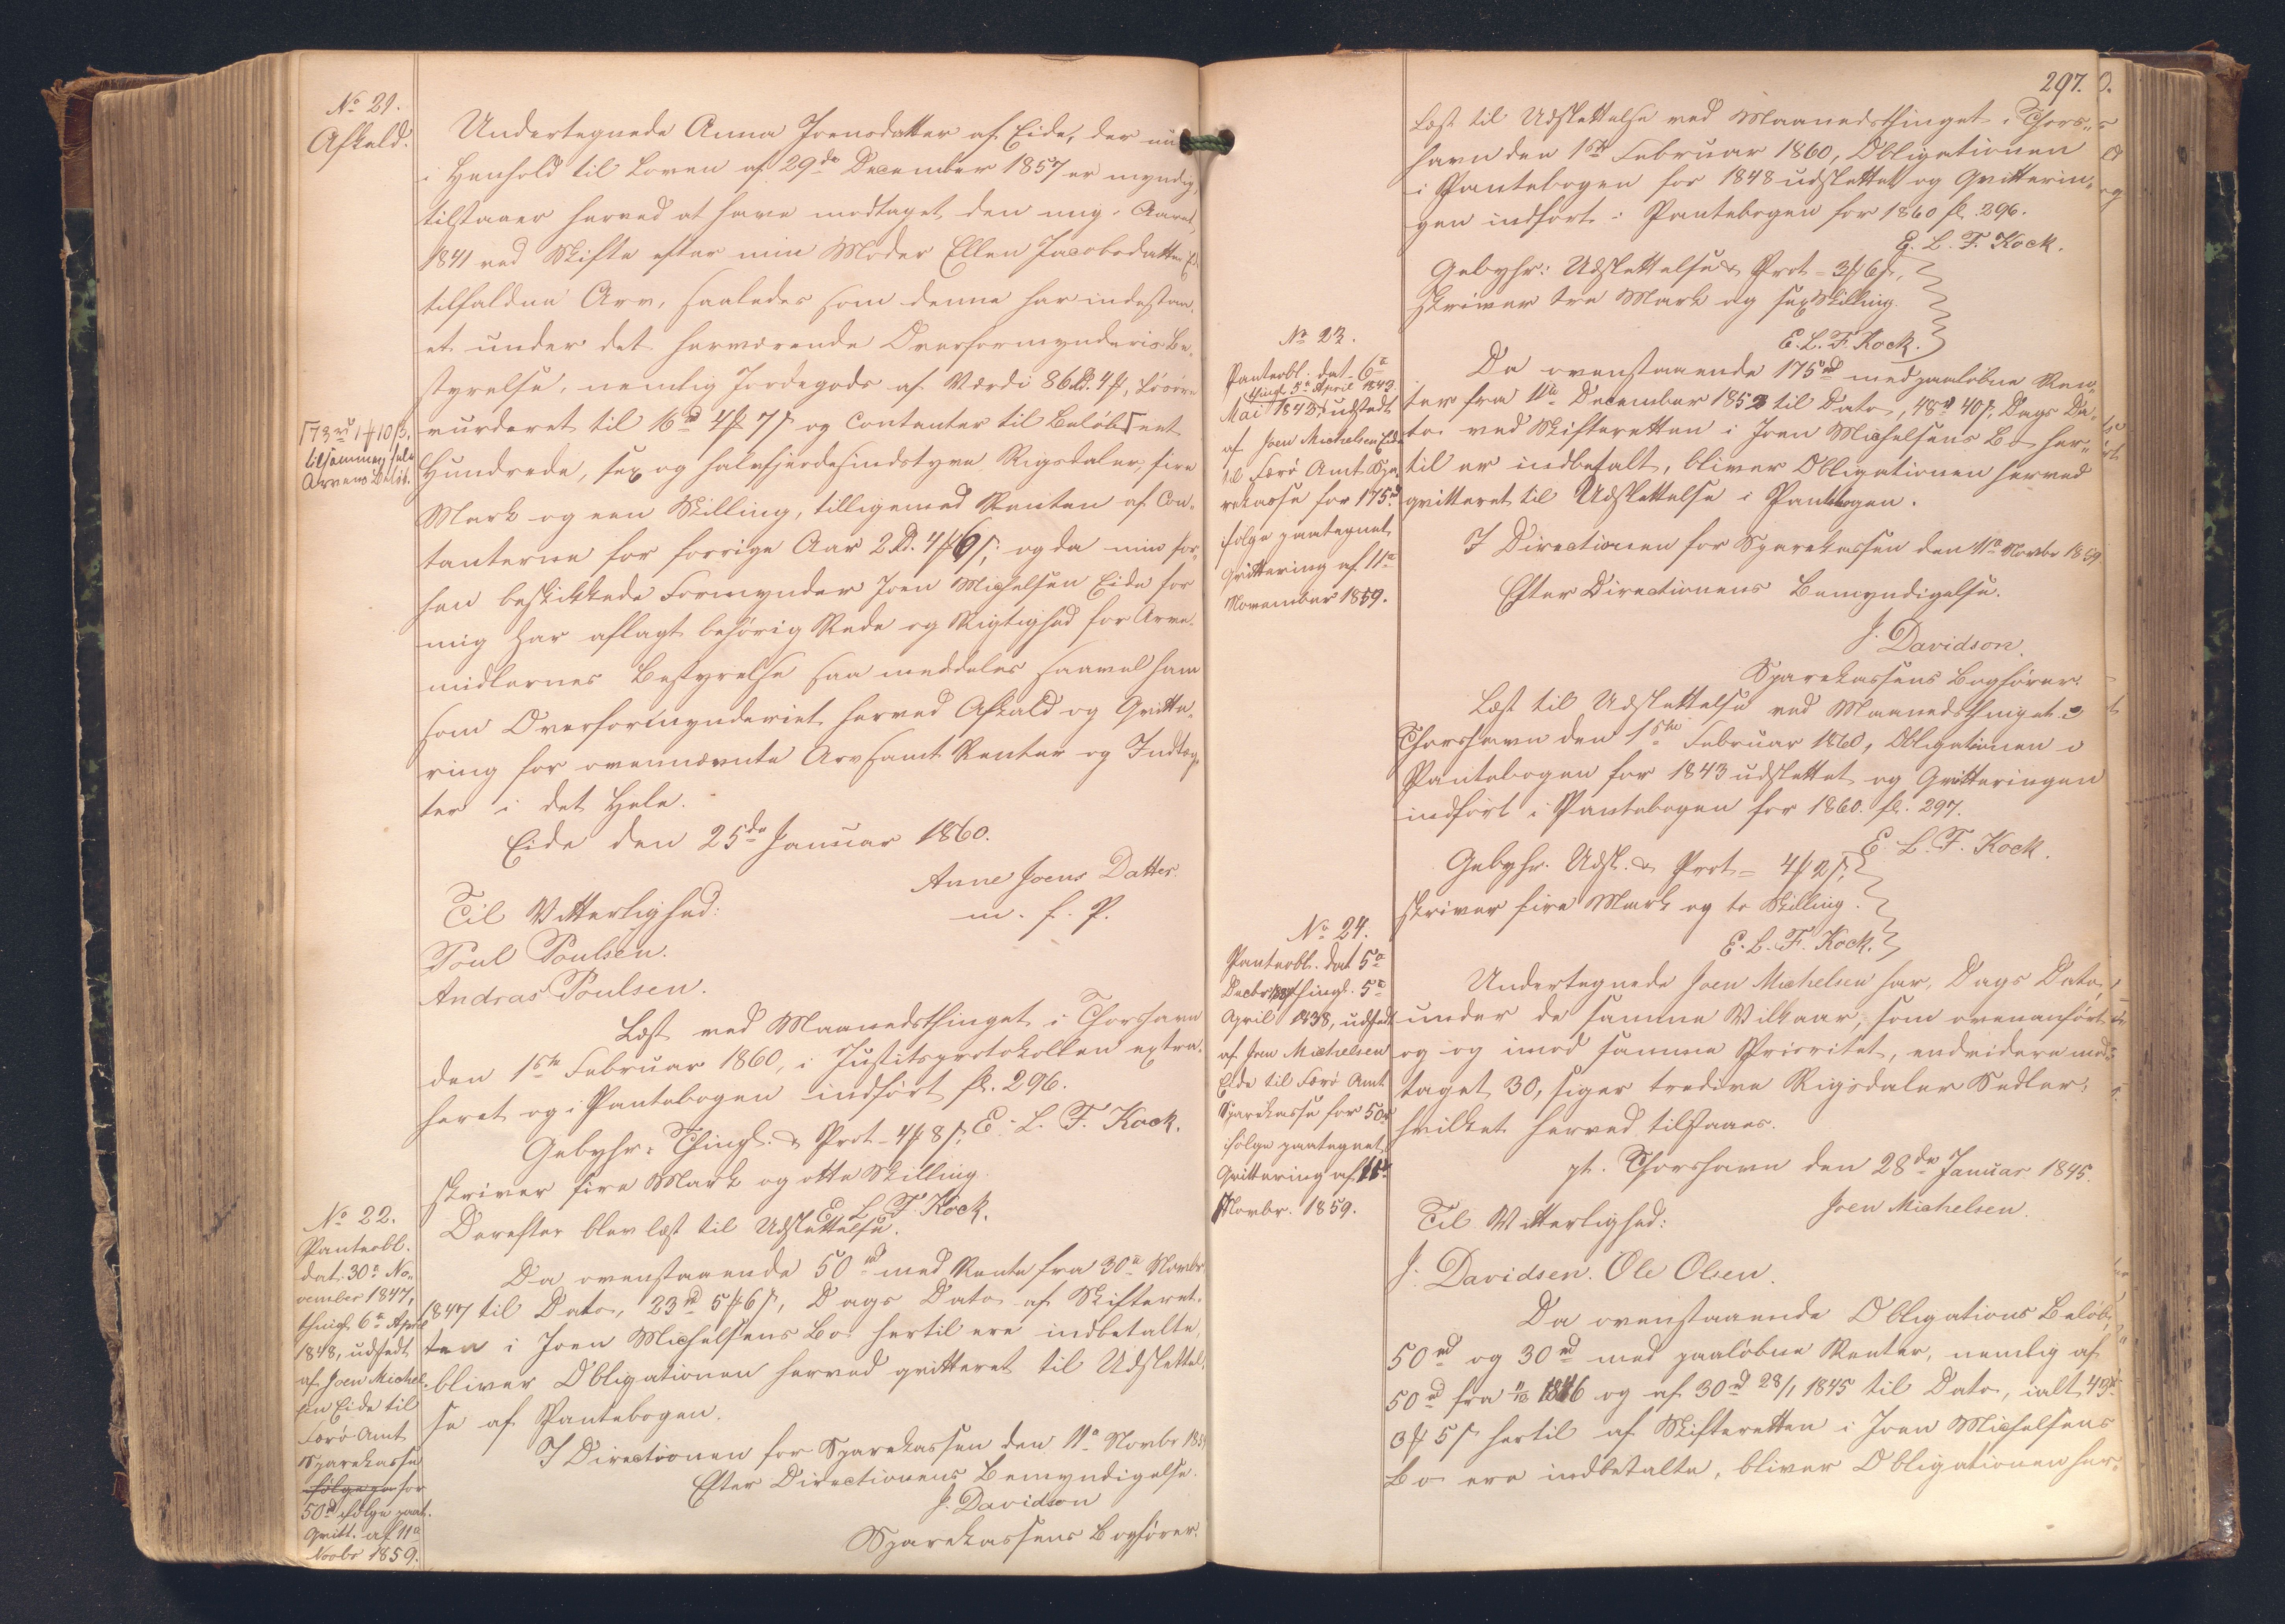 No 21.
Afkald.
Undertegnede Anna Joensdatter af Eide, der nu
i Henhold til Loven af 29de December 1857 er myndig,
tilstaaer herved at have modtaget den mig i Aaret
1841 ved Skifte efter min Moder Ellen Jacobsdatter Eide
tilfaldne Arv, saaledes som denne har indestaa-
et under det herværende Overformynderies Be-
styrelse, nemlig Jordegods af Værdi 86 Rd. 4 ₰, Løsøre
vurderet til 16 rd 4 ₰ 7 s og Contanter til Beløb eet
Hundrede, sex og halvfjerdesindstyve Rigsdaler, fire
Mark og een Skilling, tilligemed Renten af Con-
tanterne for forrige Aar 2 Rd. 4 ₰ 6 s; og da min for-
hen beskikkede Formynder Joen Michelsen Eide for
mig har aflagt behørig Rede og Rigtighed for Arve-
midlernes Bestyrelse saa meddeles saavel ham
som Overformynderiet herved Afkald og Qvitte-
ring for ovennævnte Arv samt Renter og Indtæg-
ter i det Hele.
Eide den 25de Januar 1860.
Anne Joens Datter.
m. f. P.
Til Vitterlighed:
Poul Poulsen.
Andras Poulsen.
173 rd 1 ₰ 10 ß.
tilsammen hele
Arvens Beløb.
Læst ved Maanedsthinget i Thorshavn
den 1ste Februar 1860, i Justitsprotokollen extra-
heret og i Pantebogen indført fl. 296.
E. L. F. Kock.
Gebyhr: Thingl. & Prot - 4 ₰ 8 s;
skriver fire Mark og otte Skilling.
E. L. F. Kock.
Derefter blev læst til Udslettelse.
No 22.
Panteobl.
dat. 30te No-
vember 1847,
thingl. 6te April
1848, udstedt
af Joen Michel-
sen Eide til
Færø Amts
Sparekasse
for
50 rd ifølge paat.
Qvitt. af 11te
Novbr 1859.
Da ovenstaaende 50 rd med Rente fra 30te Novbr
1847 til Dato, 23 rd 5 ₰ 6 s, Dags Dato af Skifteret-
ten i Joen Michelsens Bo hertil ere indbetalte,
bliver Obligationen herved qvitteret til Udslettel-
se af Pantebogen.
I Directionen for Sparekassen den 11te Novbr 1859
Efter Directionens Bemyndigelse.
J. Davidson
Sparekassens Bogfører.
297.
Læst til Udslettelse ved Maanedsthinget i Thors-
havn den 1ste Februar 1860, Obligationen
i Pantebogen for 1848 udslettet og Qvitterin-
gen indført i Pantebogen for 1860 fl. 296.
E. L. F. Kock.
Gebyhr: Udslettelse & Prot - 3 ₰ 6 s,
skriver tre Mark og sex Skilling.
E. L. F. Kock.
No 23.
Panteobl. dat. 6te
thingl. 5te April 1843
Mai 1842, udstedt
af Joen Michelsen Eide
til Færø Amts Spa-
rekasse for 175 rd
ifølge paategnet
Qvittering af 11te
November 1859.
Da ovenstaaende 175 rd med paaløbne Ren-
ter fra 11te December 1858 til Dato, 48 rd 40 s. Dags Da-
to ved Skifteretten i Joen Michelsens Bo her-
til er indbetalt, bliver Obligationen herved
qvitteret til Udslettelse i Pantebogen.
I Directionen for Sparekassen den 11te Novbr 1859.
Efter Directionens Bemyndigelse.
J. Davidson.
Sparekassens Bogfører.
Læst til Udslettelse ved Maanedsthinget i
Thorshavn den 1ste Februar 1860, Obligationen i
Pantebogen for 1843 udslettet og Qvitteringen
indført i Pantebogen for 1860. fl. 297.
E. L. F. Kock.
Gebyhr. Udsl. & Prot - 4 ₰ 2 s;
skriver fire Mark og to Skilling.
E. L. F. Kock.
No 24.
Panteobl. dat 5te
Decbr 1837 thingl. 5te
April 1838, udstedt
af Joen Michelsen
Eide til Færø Amts
Sparekasse for 50 rd
ifølge paategnet
Qvittering af 11te
Novbr. 1859.
Undertegnede Joen Michelsen har, Dags Dato,
under de samme Vilkaar, som ovenanført
og og imod samme Prioritet, endvidere mod-
taget 30, siger tredive Rigsdaler Sedler,
hvilket herved tilstaaes.
pt. Thorshavn den 28de Januar 1845.
Joen Michelsen.
Til Vitterlighed:
J. Davidsen. Ole Olsen.
Da ovenstaaende Obligations Beløb,
50 rd og 30 rd med paaløbne Renter, nemlig af
50 rd fra 1846 og af 30 rd 28/1 1845 til Dato, ialt 43 rd
3 ₰ 5 s hertil af Skifteretten i Joen Michelsens
Bo ere indbetalte, bliver Obligationen her-